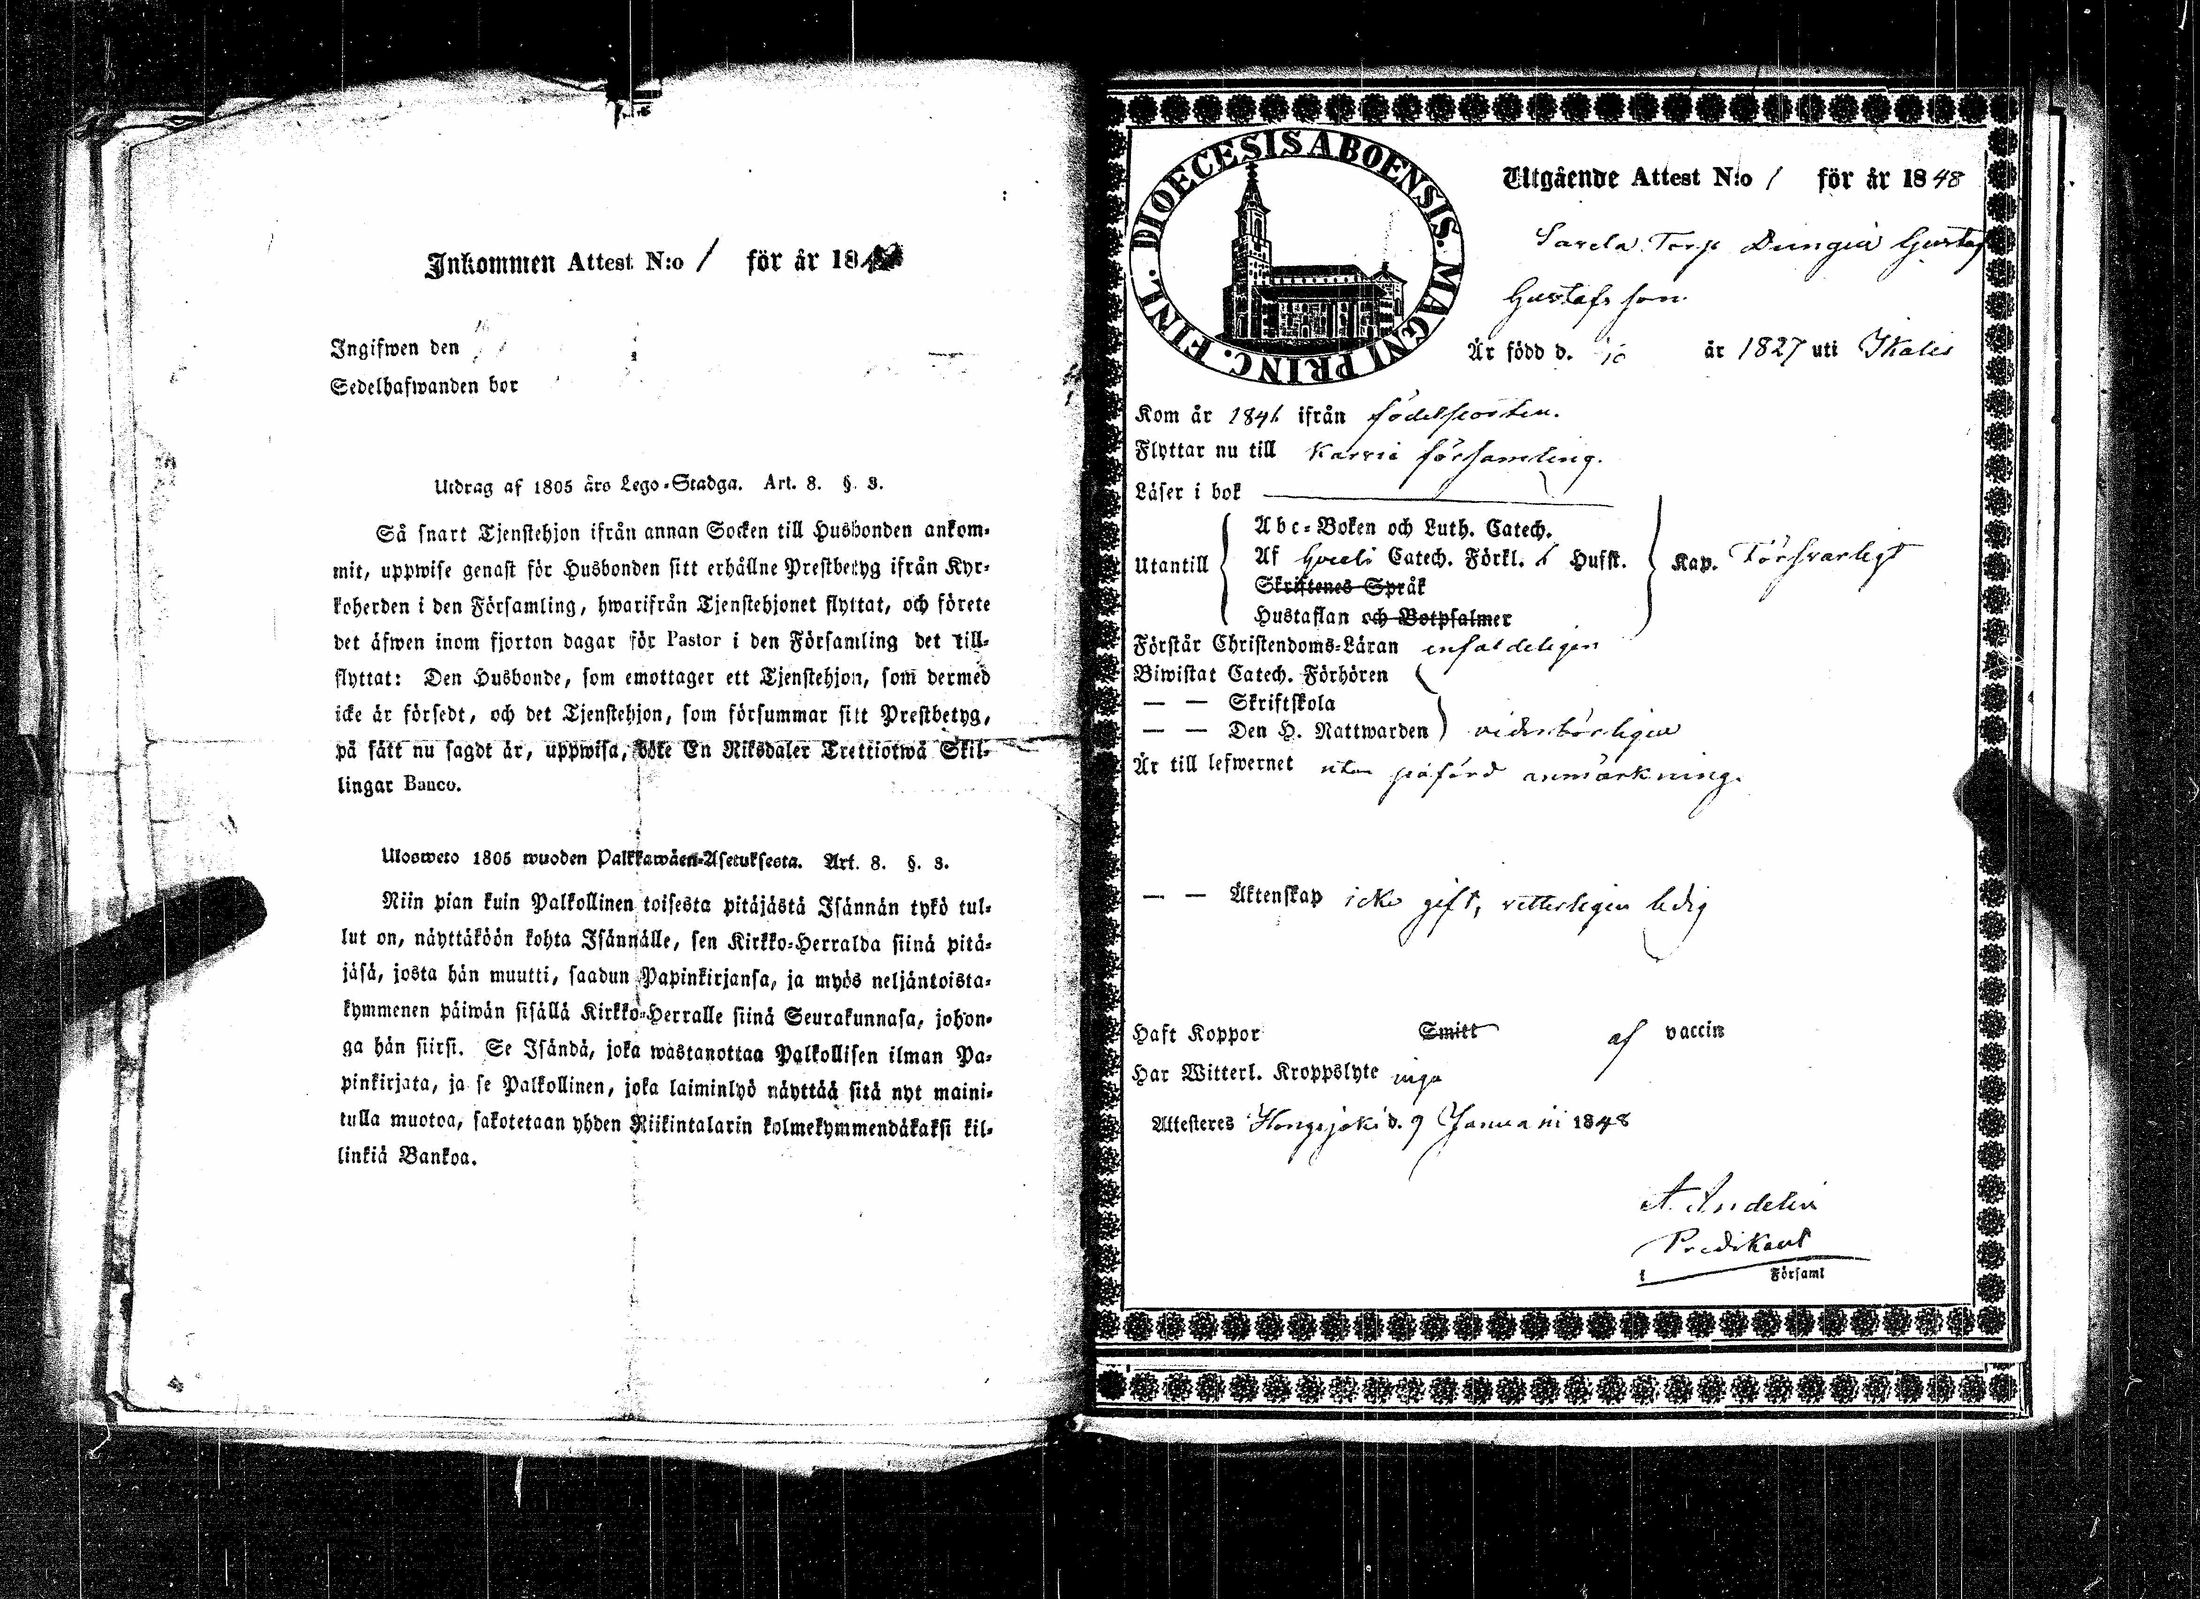 Inkommen Attest N:o 1 för år 18
Ingifwen den
Sedelhafwanden bor
Utdrag af 1805 års Lego-Stadga. Art. 8. §. 3.
Så snart Tjenstehjon ifrån annan Socken till Husbonden ankom-
mit, uppwise genast för Husbonden sitt erhållne Prestbetyg ifrån Kyr-
koherden i den Församling, hwarifrån Tjenstehjonet flyttat, och förete
det äfwen inom fjorton dagar för Pastor i den Församling det till-
flyttat: Den Husbonde, som emottager ett Tjenstehjon, som dermed
icke är försedt, och det Tjenstehjon, som försummar sitt Prestbetyg,
på sätt nu sagdt är, uppwisa, böte En Riksdaler Trettiotwå Skil-
lingar Banco.
Ulosweto 1805 wuoden Palkkawäen-Asetuksesta. Art. 8. §. 3.
Niin pian kuin Palkollinen toisesta pitäjästä Isännän tykö tul-
lut on, näyttäköön kohta Isännälle, sen Kirkko-Herralda siinä pitä-
jäsä, josta hän muutti, saadun Papinkirjansa, ja myös neljäntoista-
kymmenen päiwän sisällä Kirkko-Herralle siinä Seurakunnasa, johon-
ga hän siirsi. Se Isändä, joka wastanottaa Palkollisen ilman Pa-
pinkirjata, ja se Palkollinen, joka laiminlyö näyttää sitä nyt maini-
tulla muotoa, sakotetaan yhden Riikintalarin kolmekymmendäkaksi kil-
linkiä Bankoa.
DIOECESIS ABOENSIS. MAGNI PRINC. FINL.
Utgående Attest N:o 1 för år 1848
Savela Torp Drengen Gustaf
Gustafsson
Är född d. 10 år 1827 uti Ikalis
Kom år 1846 ifrån födelseorten.
Flyttar nu till Karvia församling.
Läser i bok
Utantill
Abc-Boken och Luth. Catech.
Af Catech. Förkl. Hufst. Kap. Försvarligt
Skriftenes Språk
Hustaflan och Botpsalmer
Förstår Christendoms-Läran enfaldeligen
Biwistat Catech. Förhören
— — Skriftskola
— — Den H. Nattwarden vederbörligen
Är till lefwernet utan påförd anmärkning.
— — Äktenskap icke gift, vetterligen ledig
Haft Koppor Smitt af vaccin
Har Witterl. Kroppslyte inga
Attesteres Hongojoki d. 9 Januarii 1848
A. Andelin
Predikant
i Församl